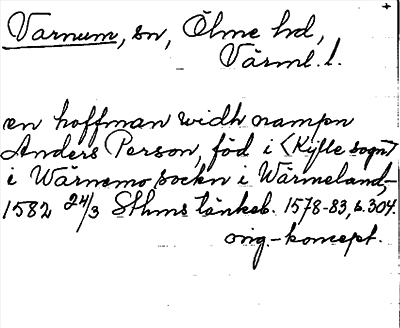 Varnum, sn, Ölme hd,
Värml. l.
en hoffman widh nampn
Anders Person, föd i <Kyfle sogn>
i Wärnemo sockn i Wärmeland,-
1582 24/3 Sthms tänkeb. 1578-83, s. 304.
orig.-koncept.